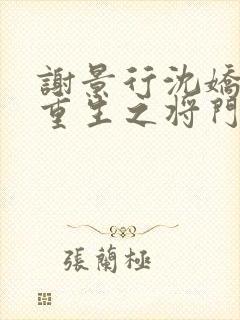 謝景行沈嬌
重生之将門
張蘭極